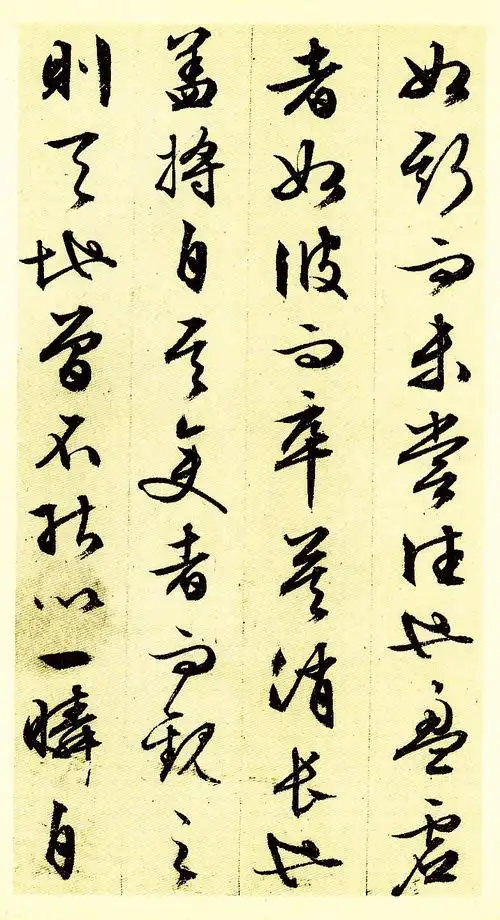 如斯而未嘗往也盈虛
者如彼而卒莫消長也
盖將自其變者而觀之
則天地曾不能以一瞬自